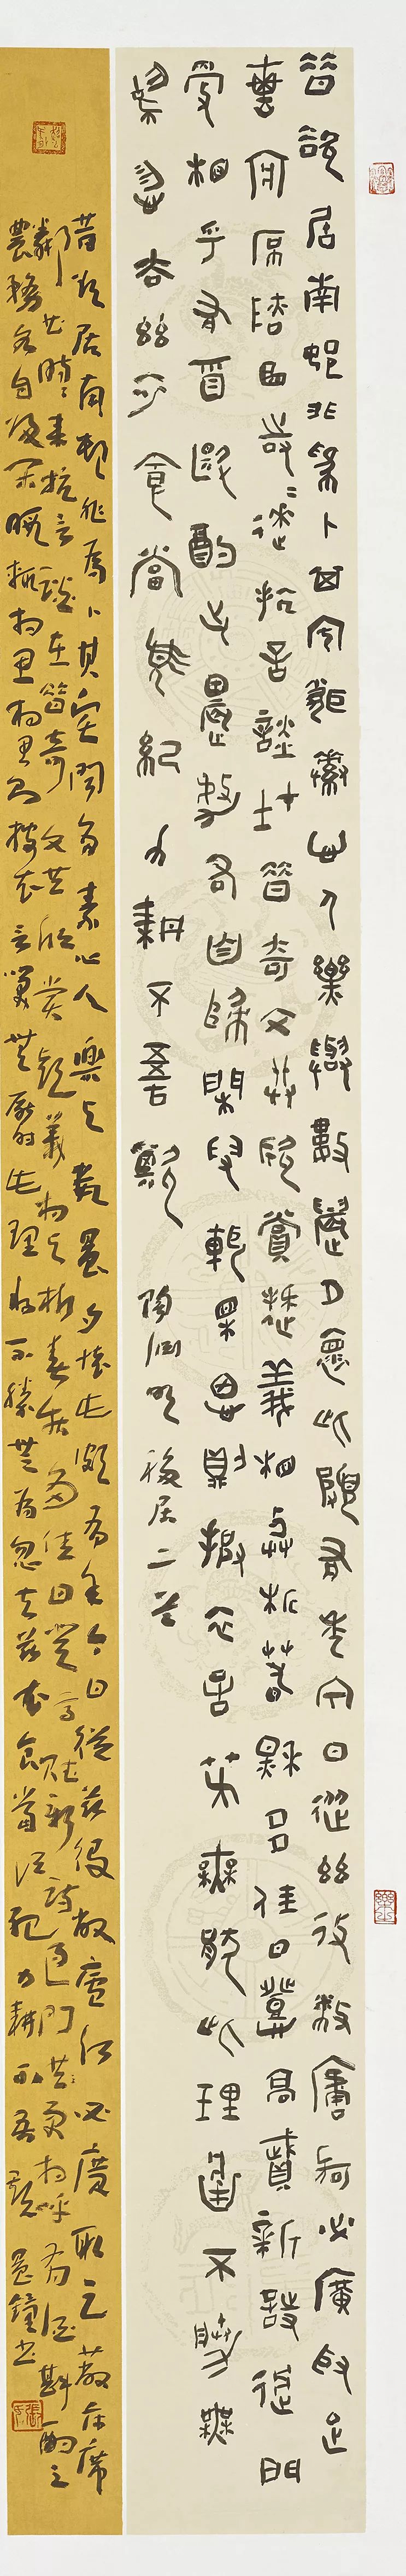 昔欲居南村非為卜其宅聞多素心人樂與數晨夕懷此頗有年今日從茲役敝廬何必廣取足
蔽床席鄰曲時時來抗言談在昔奇文共欣賞疑義相與析春秋多佳日登高賦新詩過門
更相乎有酒斟酌之農務各自歸閒暇輒相思則披衣言笑無厭時此理將不勝無
為忽去茲衣食當須紀力耕不吾欺 陶淵明移居二首
昔欲居南村非為卜其宅聞多素心人樂與數晨夕懷此頗有年今日從茲役敝廬何必廣取足蔽床席
鄰曲時時來抗言談在昔奇文共欣賞疑義相與析春秋多佳日登高賦新詩過門更相呼有酒斟酌之
農務各自歸閒暇輒相思相思則披衣言笑無厭時此理將不勝無為忽去茲衣食當須紀力耕不吾欺 晨鐘書